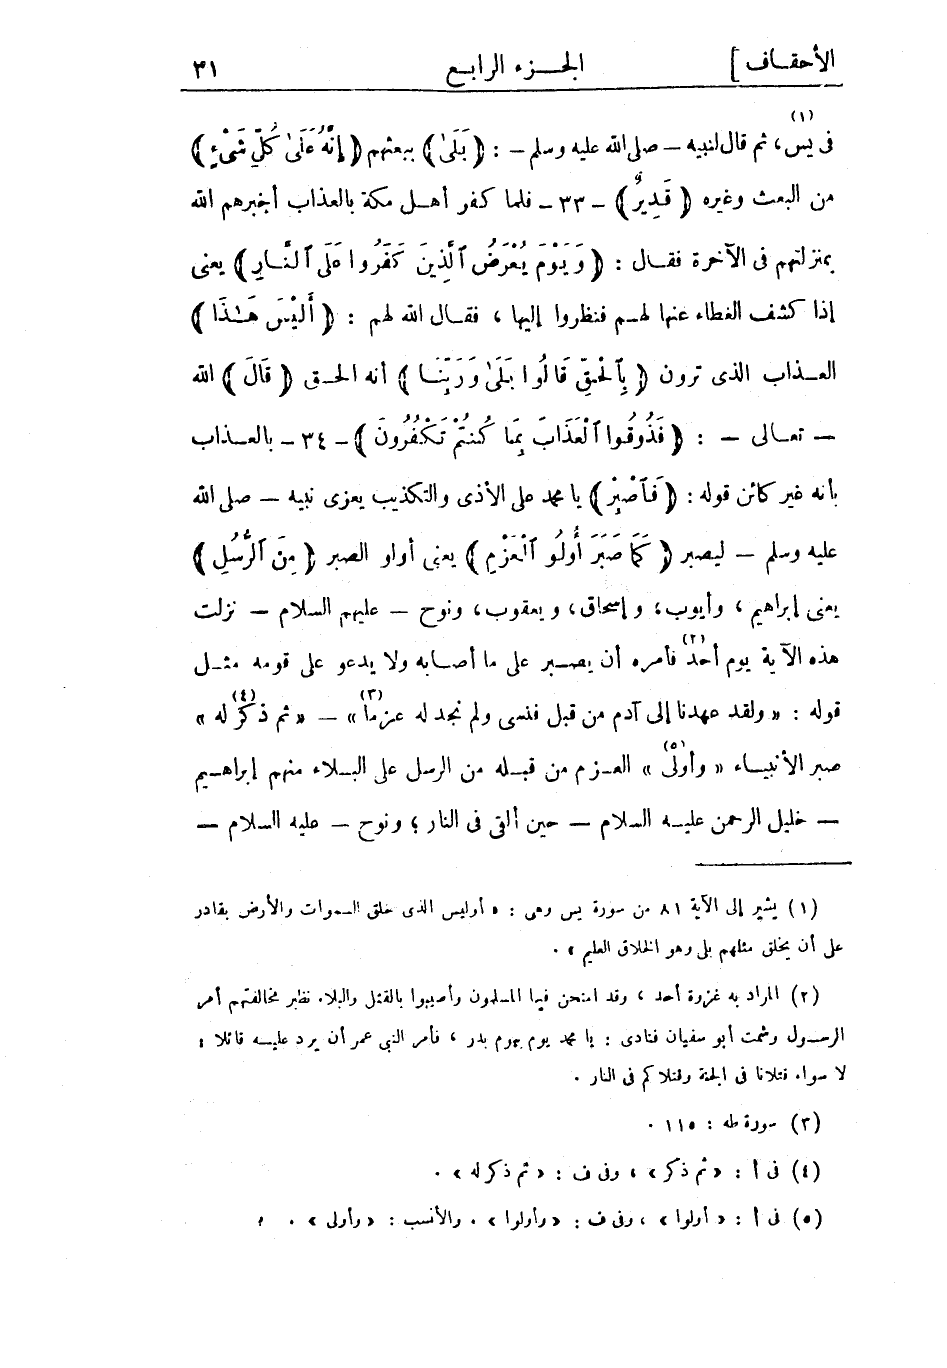 الأحقاف ] الجزء الرابع ٣١
فى يس(١)، ثم قال لنبيه — صلى الله عليه وسلم — : ﴿ بَلَىٰ ﴾ يبعثهم ﴿ إِنَّهُ عَلَىٰ كُلِّ شَىْءٍ ﴾
من البعث وغيره ﴿ قَدِيرٌ ﴾ — ٣٣ — فلما كفر أهل مكة بالعذاب أخبرهم الله
بمنزلتهم فى الآخرة فقال : ﴿ وَيَوْمَ يُعْرَضُ ٱلَّذِينَ كَفَرُوا عَلَى ٱلنَّارِ ﴾ يعنى
إذا كشف الغطاء عنها لهم فنظروا إليها ، فقال الله لهم : ﴿ أَلَيْسَ هَـٰذَا ﴾
العذاب الذى ترون ﴿ بِٱلْحَقِّ قَالُوا بَلَىٰ وَرَبِّنَا ﴾ أنه الحق ﴿ قَالَ ﴾ الله
— تعالى — : ﴿ فَذُوقُوا ٱلْعَذَابَ بِمَا كُنتُمْ تَكْفُرُونَ ﴾ — ٣٤ — بالعذاب
بأنه غير كائن قوله : ﴿ فَٱصْبِرْ ﴾ يا محمد على الأذى والتكذيب يعزى نبيه — صلى الله
عليه وسلم — ليصبر ﴿ كَمَا صَبَرَ أُولُو ٱلْعَزْمِ ﴾ يعنى أولو الصبر ﴿ مِنَ ٱلرُّسُلِ ﴾
يعنى إبراهيم ، وأيوب ، وإسحاق ، ويعقوب ، ونوح — عليهم السلام — نزلت
هذه الآية يوم أحد(٢) فأمره أن يصبر على ما أصابه ولا يدعو على قومه مثل
قوله : « ولقد عهدنا إلى آدم من قبل فنسى ولم نجد له عزما(٣) » — « ثم ذكر له(٤) »
صبر الأنبياء « وأولى(٥) » العزم من قبله من الرسل على البلاء منهم إبراهيم
— خليل الرحمن عليه السلام — حين ألقى فى النار ؛ ونوح — عليه السلام —
(١) يشير إلى الآية ٨١ من سورة يس وهى : « أوليس الذى خلق السموات والأرض بقادر
على أن يخلق مثلهم بلى وهو الخلاق العليم » .
(٢) المراد به غزوة أحد ، وقد امتحن فيها المسلمون وأصيبوا بالقتل والبلاء نظير مخالفتهم أمر
الرسول وشمت أبو سفيان فنادى : يا محمد يوم بيوم بدر ، فأمر النبى عمر أن يرد عليه قائلا :
لا سواء قتلانا فى الجنة وقتلاكم فى النار .
(٣) سورة طه : ١١٥ .
(٤) فى أ : « ثم ذكر » ، وفى ف : « ثم ذكر له » .
(٥) فى أ : « أولوا » ، وفى ف : « وأولوا » . والأنسب : « وأولى » .